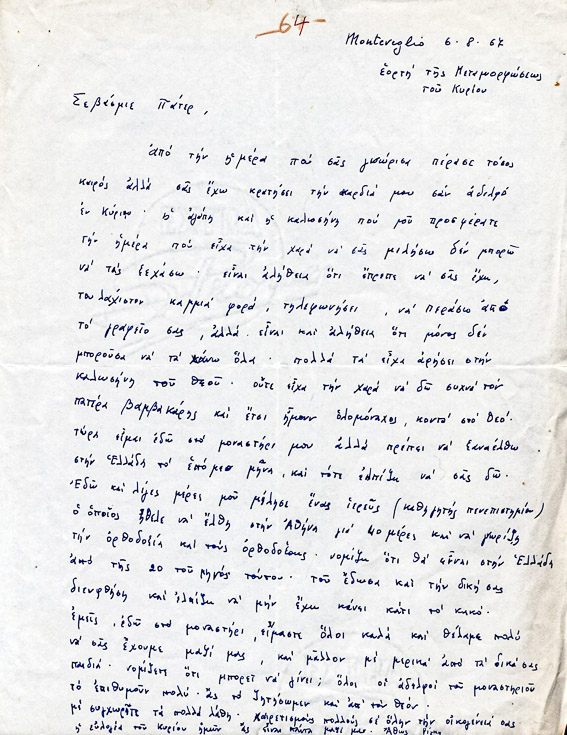 64
Monteveglio 6.8.67
ἑορτή τῆς Μεταμορφώσεως
τοῦ Κυρίου
Σεβάσμιε Πάτερ,
ἀπό τήν ἡμέρα πού σᾶς γνώρισα πέρασε τόσος
καιρός ἀλλά σᾶς ἔχω κρατήσει τήν καρδιά μου σάν ἀδελφό
ἐν Κυρίῳ. ἡ ἀγάπη καί ἡ καλωσήνη πού μοῦ προσφέρατε
τήν ἡμέρα πού εἶχα τήν χαρά νά σᾶς μιλήσω δέν μπορῶ
νά τάς ξεχάσω. εἶναι ἀλήθεια ὅτι ἔπρεπε νά σᾶς ἔχω,
τουλάχιστον καμμιά φορά, τηλεφωνήσει, νά περάσω ἀπό
τό γραφεῖο σας, ἀλλά εἶναι καί ἀλήθεια ὅτι μόνος δέν
μποροῦσα νά τά κάνω ὅλα. πολλά τά εἶχα ἀφήσει στήν
καλωσήνη τοῦ Θεοῦ. οὔτε εἶχα τήν χαρά νά δῶ συχνά τόν
πατέρα βαμβακάρης καί ἔτσι ἤμουν ὁλομόναχος, κοντά στό Θεό.
τώρα εἶμαι ἐδῶ στό μοναστήρι μου ἀλλά πρέπει νά ξαναέλθω
στήν Ἑλλάδα τό ἑπόμεο μήνα, καί τότε ἐλπίζω νά σᾶς δῶ.
Ἐδῶ καί λίγες μέρες μοῦ μίλησε ἕνας ἱερεῦς (καθηγητής πενεπιστημίου)
ὁ ὁποῖος ἤθελε νά ἔλθη στήν Ἀθήνα γιά 40 μέρες καί νά γνωρίζη
τήν ὀρθοδοξία καί τούς ὀρθοδόξους. νομίζω ὅτι θά εἶναι στήν Ἑλλάδα
ἀπό τῆς 20 τοῦ μηνός τούτου. τοῦ ἔδωσα καί τήν δική σας
διευφθήση καί ἐλπίζω νά μήν ἔχω κάνει κάτι τό κακό.
ἐμεῖς, ἐδῶ στό μοναστήρι, εἴμαστε ὅλοι καλά καί θέλαμε πολύ
νά σᾶς ἔχουμε μαζί μας, καί μᾶλλον μέ μερικά ἀπό τά δικά σας
παιδιά. νομίζετε ὅτι μπορεῖ νά γίνει; ὅλοι οἱ ἀδελφοί τοῦ μοναστηριοῦ
τό ἐπιθυμοῦν πολύ. ἄς τό ζητήσωμεν καί ἀπό τόν Θεόν.
μέ συγχωρῆτε τά πολλά λάθη. χαιρετισμούς πολλούς σέ ὅλην τήν οἰκογένεία σας
ἡ εὐλογία τοῦ Κυρίου ἡμῶν ἄς εἶναι πάντα μαζί μας.